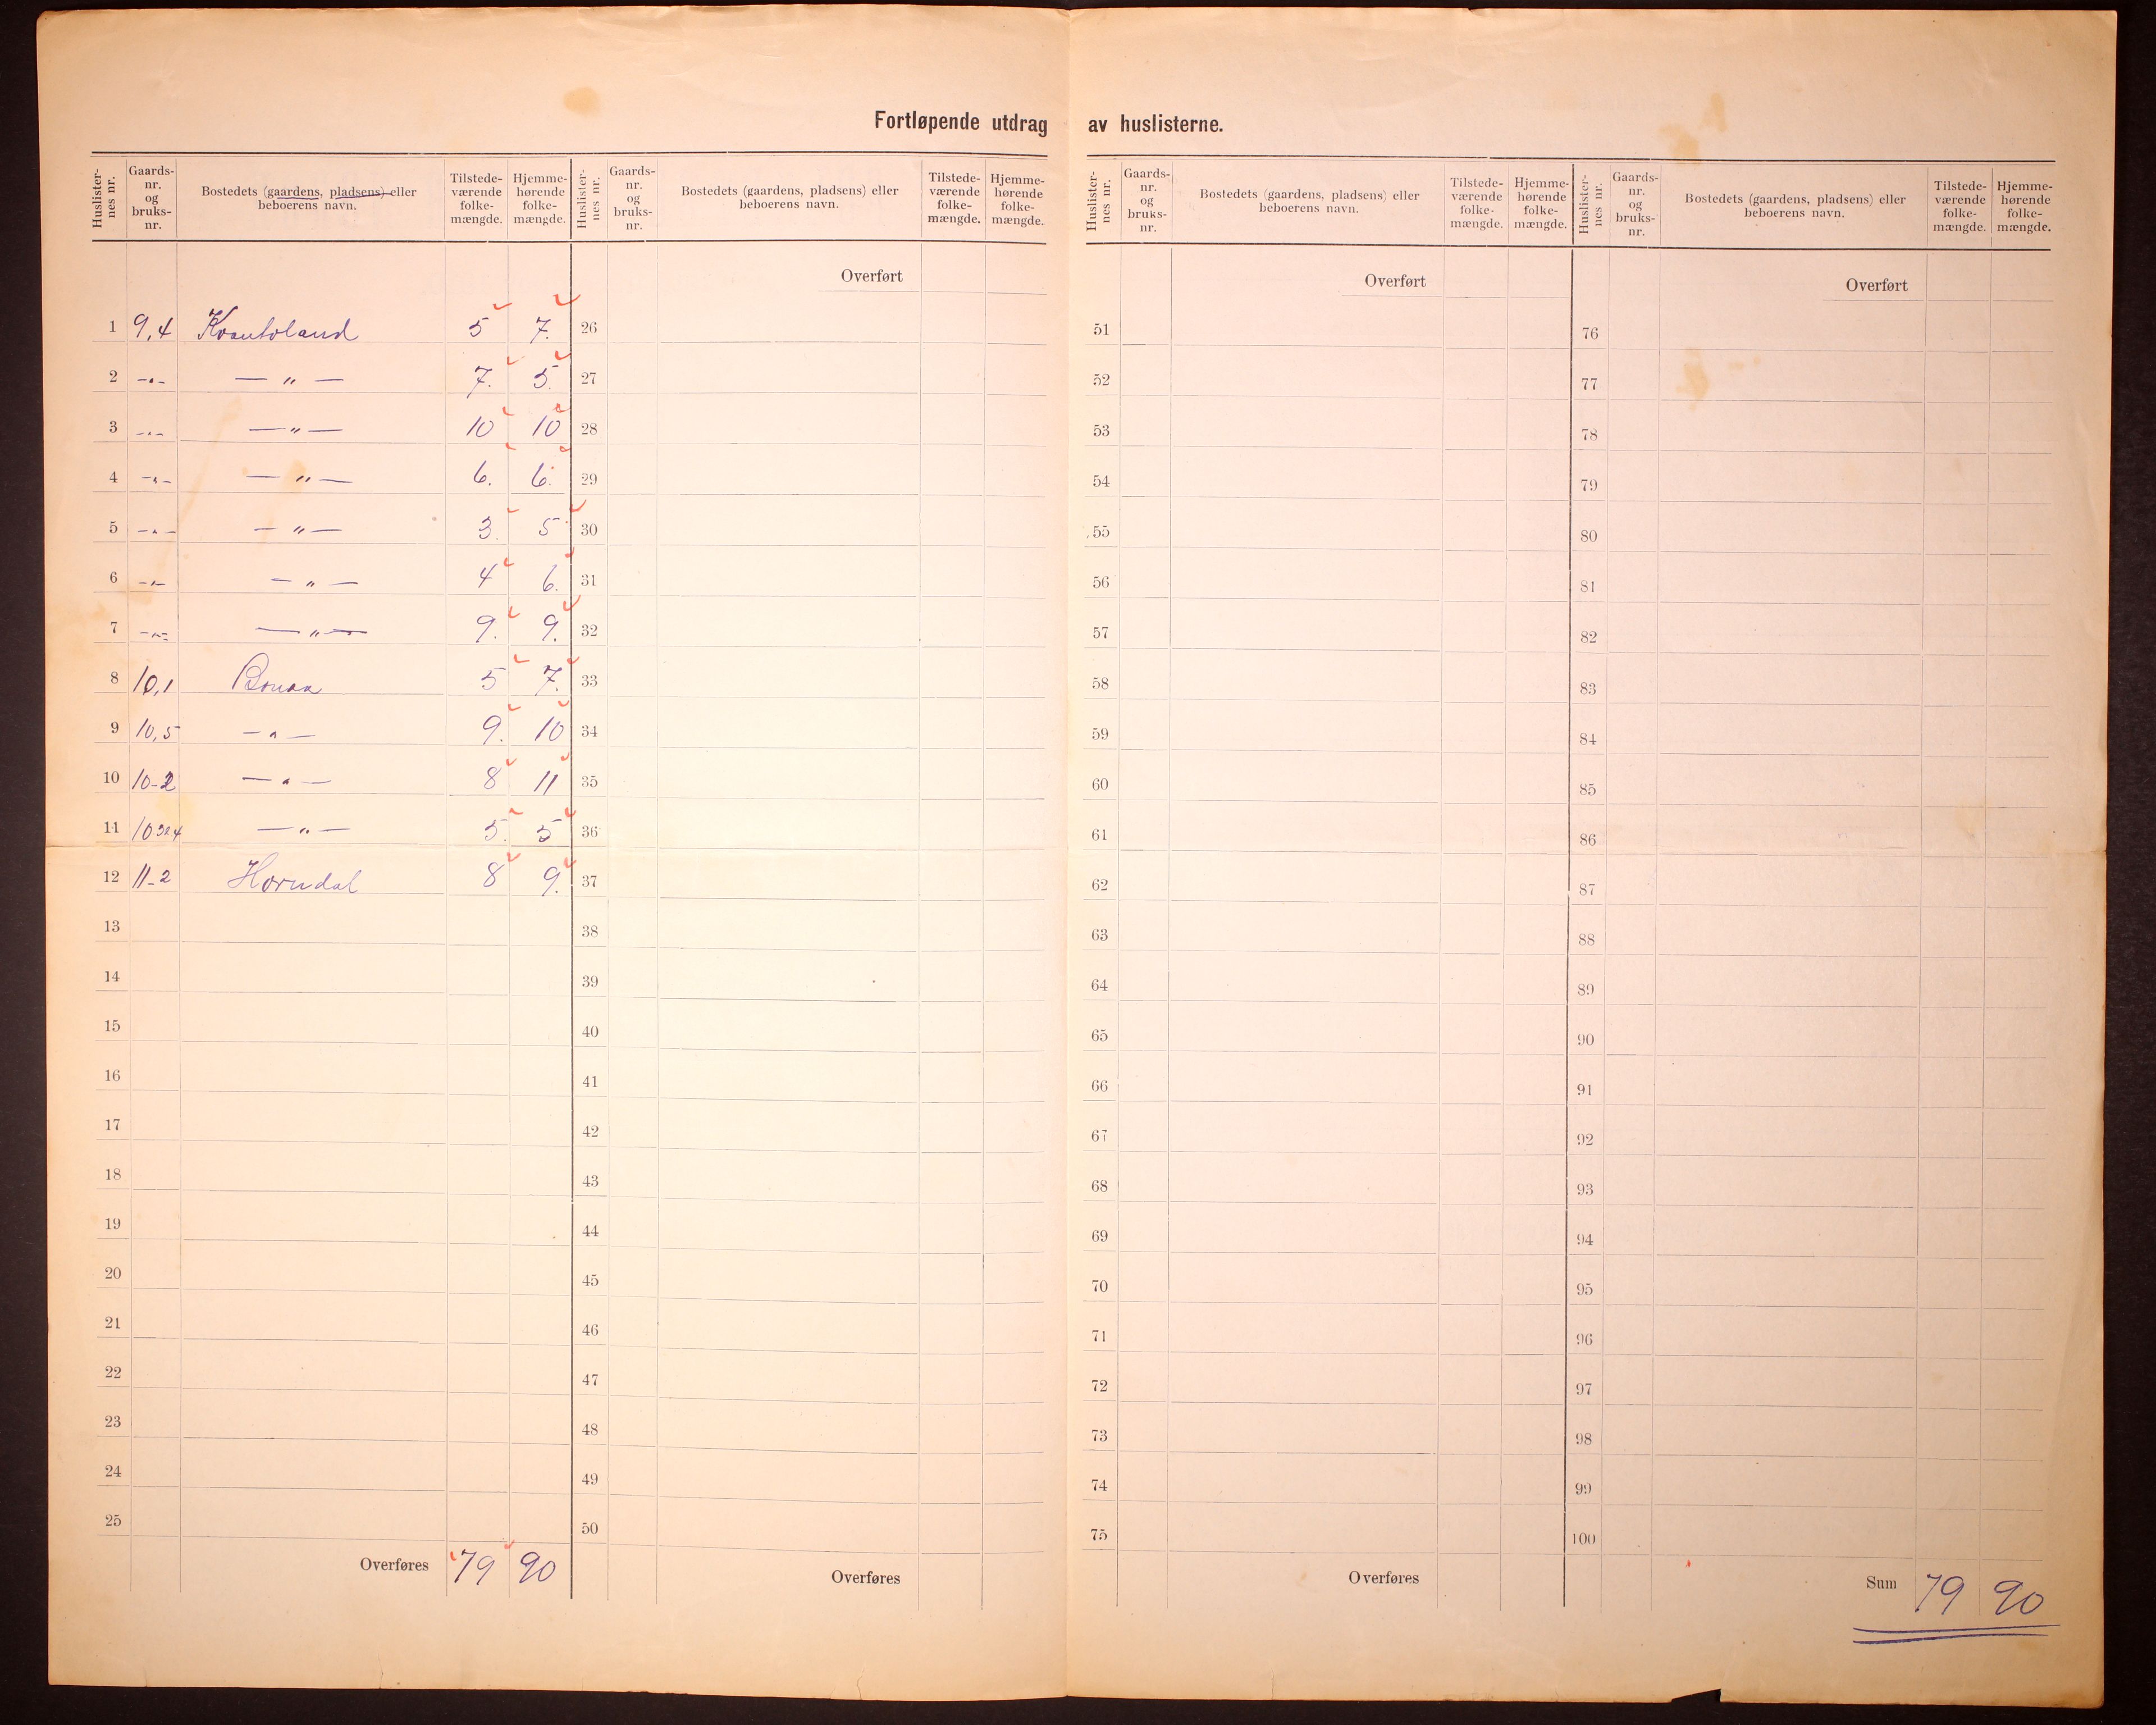 Fortløpende utdrag av huslisterne.
Huslisternes nr. | Gaards-nr. og bruks-nr. | Bostedets (gaardens, pladsens) eller beboerens navn. | Tilstedeværende folkemængde. | Hjemmehørende folkemængde.
Huslisternes nr. | Gaards-nr. og bruks-nr. | Bostedets (gaardens, pladsens) eller beboerens navn. | Tilstedeværende folkemængde. | Hjemmehørende folkemængde.
Huslisternes nr. | Gaards-nr. og bruks-nr. | Bostedets (gaardens, pladsens) eller beboerens navn. | Tilstedeværende folkemængde. | Hjemmehørende folkemængde.
Huslisternes nr. | Gaards-nr. og bruks-nr. | Bostedets (gaardens, pladsens) eller beboerens navn. | Tilstedeværende folkemængde. | Hjemmehørende folkemængde.
Overført Overført Overført
1 9,4 5 7. 26 51 76
2 -"- — " — 7. 5. 27 52 77
3 -"- — " — 10 10 28 53 78
4 -"- — " — 6. 6. 29 54 79
5 -"- — " — 3. 5 30 55 80
6 -"- — " — 4 6. 31 56 81
7 -"- — " — 9. 9. 32 57 82
8 10,1 Bonaa 5 7. 33 58 83
9 10,5 — " — 9. 10 34 59 84
10 10-2 — " — 8 11 35 60 85
11 — " — 5. 5 36 61 86
12 11-2 Horndal 8 9. 37 62 87
13 38 63 88
14 39 64 89
15 40 65 90
16 41 66 91
17 42 67 92
18 43 68 93
19 44 69 94
20 45 70 95
21 46 71 96
22 47 72 97
23 48 73 98
24 49 74 99
25 50 75 100
Overføres 79 90 Overføres Overføres Sum 79 90